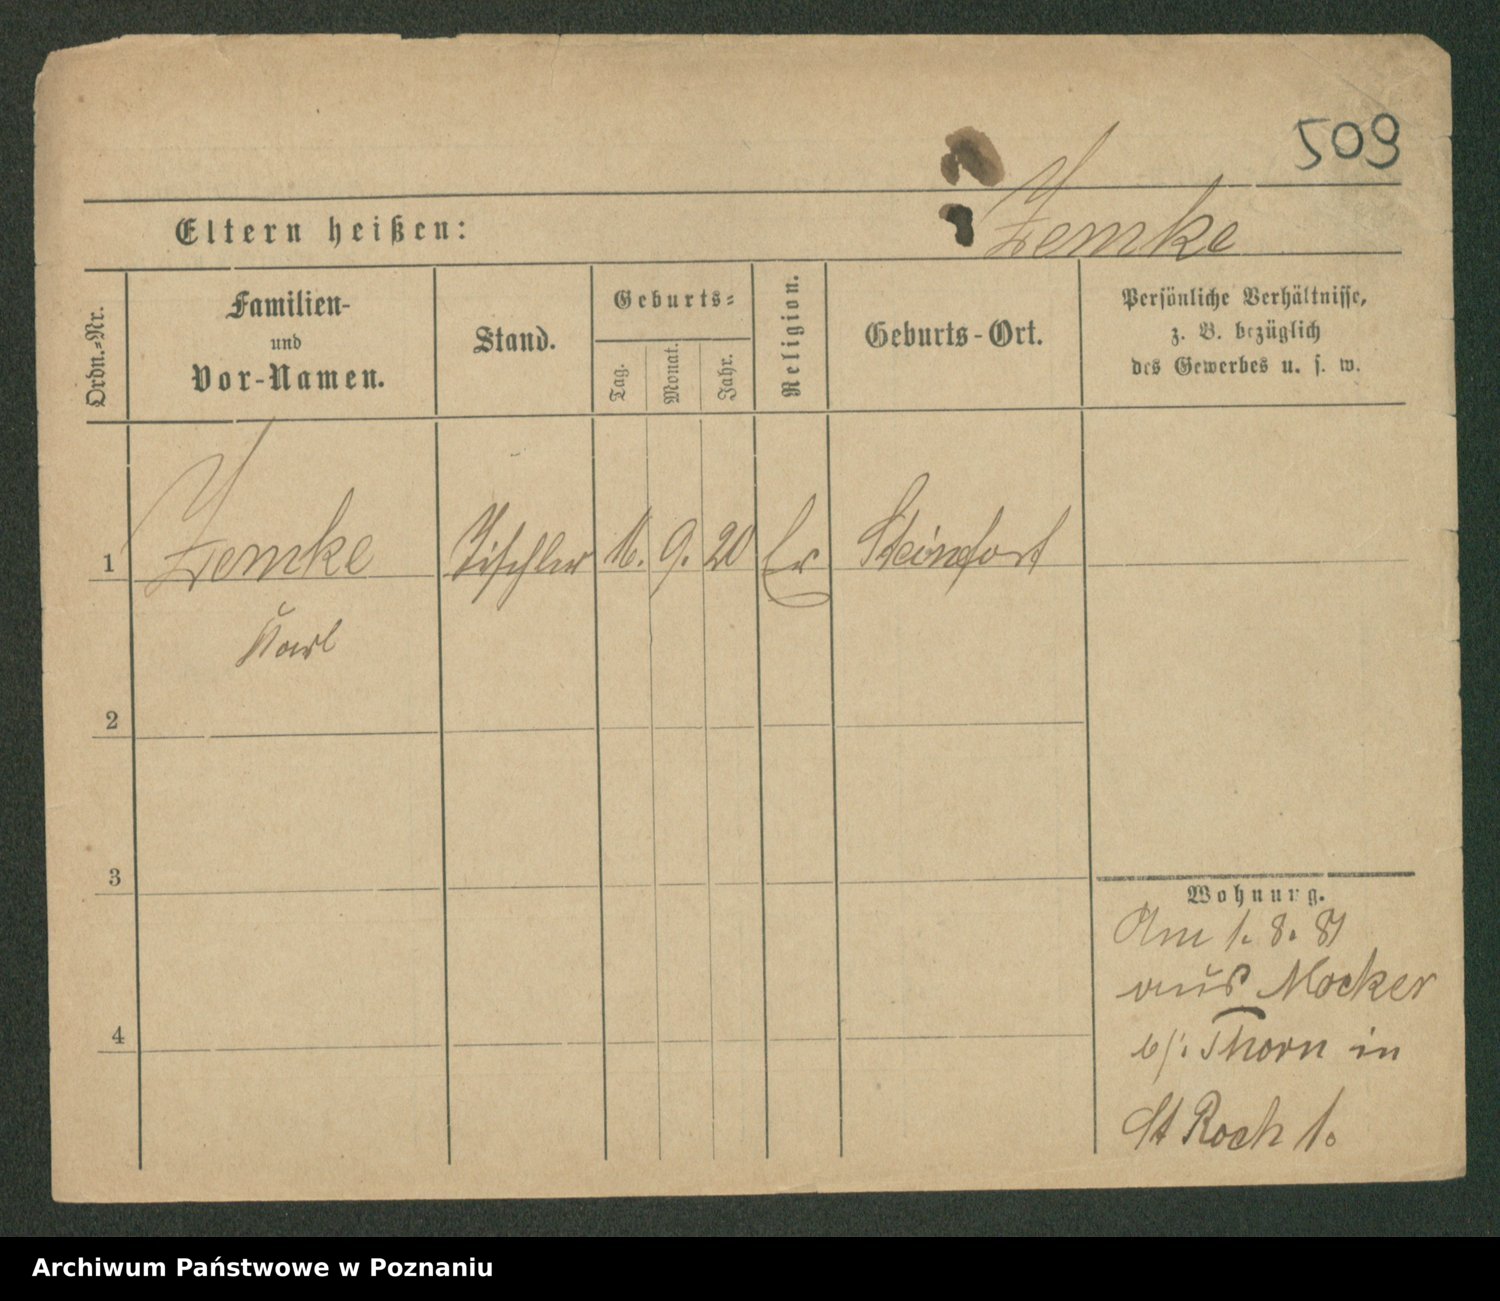 509
Eltern heißen: Zemke
Ordn.-Nr.
Familien-
und
Vor-Namen.
Stand.
Geburts-
Tag. Monat. Jahr.
Religion.
Geburts-Ort.
Persönliche Verhältnisse,
z. B. bezüglich
des Gewerbes u. s. w.
1 Zemke Tischler 16. 9. 20 Steinfort
Karl
2
3
4
Wohnung.
Am 1. 8. 81
aus Mocker
b/. Thorn in
St Roch 1.
Archiwum Państwowe w Poznaniu